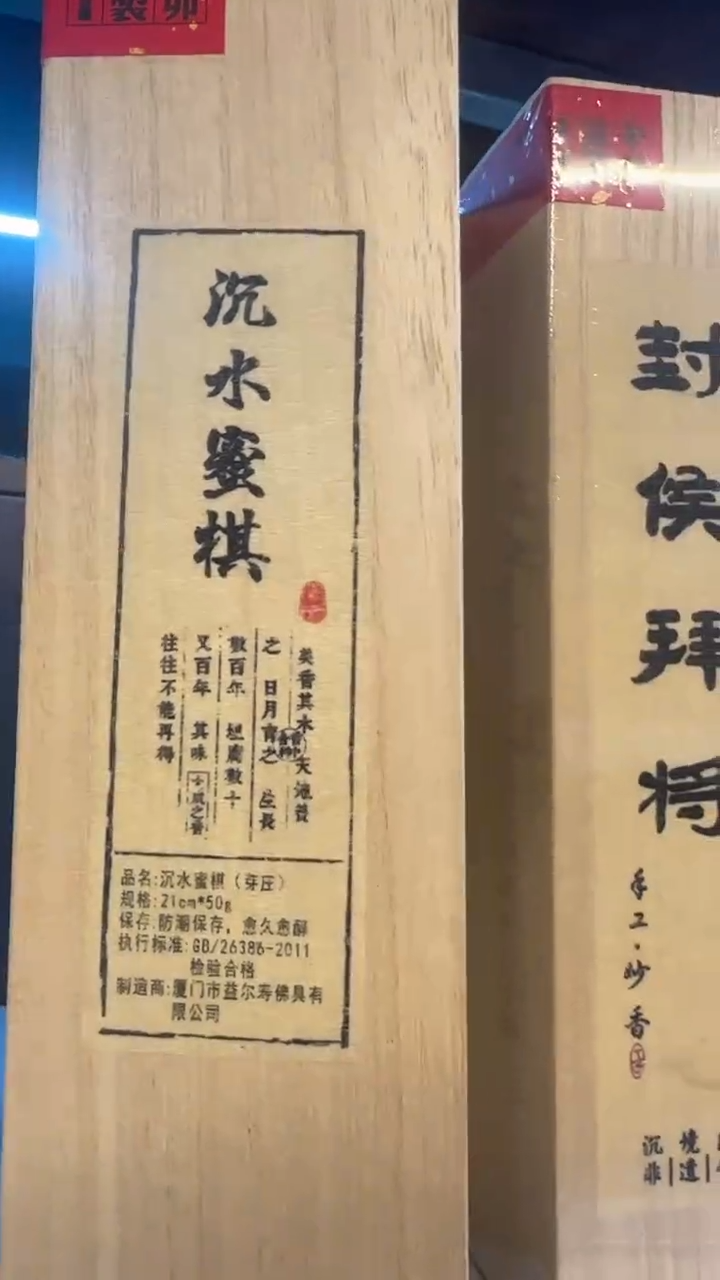 沉水蜜棋
美香其木 天地養
之 日月育之 生長
數百年 埋腐數十
又百年 其味
往往不能再得
品名:沉水蜜棋（芽庄）
规格:21cm*50g
保存:防潮保存，愈久愈醇
执行标准:GB/26386-2011
检验合格
制造商:厦门市益尔寿佛具有
限公司
封侯拜将
手工·妙香
沉 境
非 遺